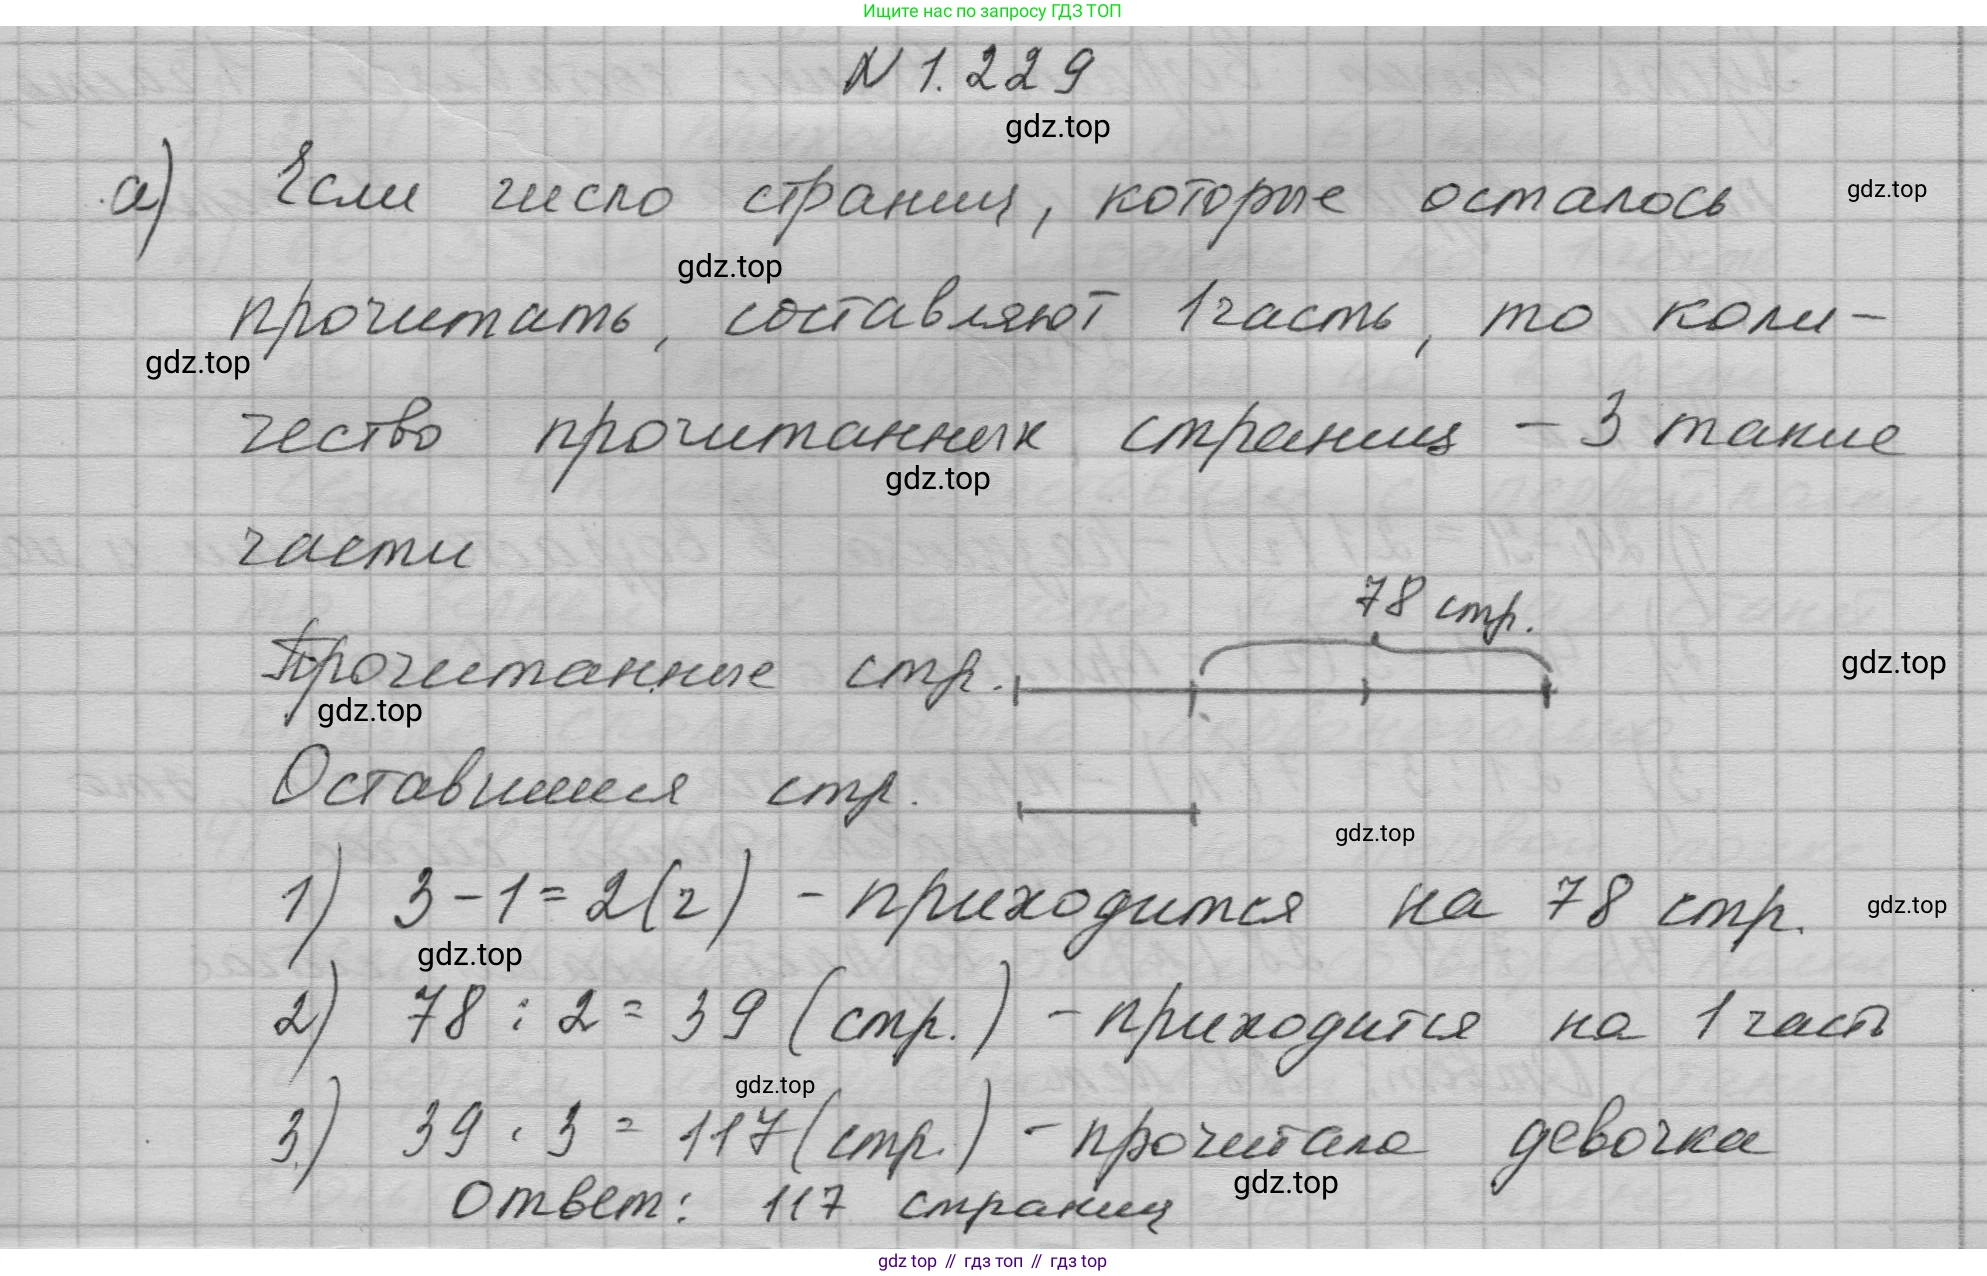 Ищите нас по запросу ГДЗ ТОП
N 1.229
gdz.top
а) Если число страниц, которые осталось
gdz.top
gdz.top
прочитать, составляют 1 часть, то коли-
gdz.top
чество прочитанных страниц - 3 такие
gdz.top
части
78 стр.
Прочитанные стр.
gdz.top
gdz.top
Оставшиеся стр.
gdz.top
1) 3 - 1 = 2 (ч) - приходится на 78 стр.
gdz.top
gdz.top
2) 78 : 2 = 39 (стр.) - приходится на 1 часть
gdz.top
3) 39 · 3 = 117 (стр.) - прочитала девочка
gdz.top
Ответ: 117 страниц
gdz top // гдз топ // гдз top